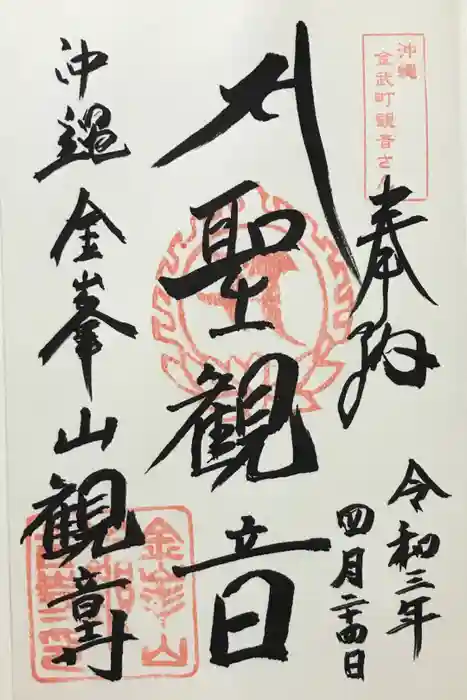 沖縄
金武町観音さ
奉拝
令和三年
四月二十四日
聖観音
沖縄 金峯山 観音寺
金峯山